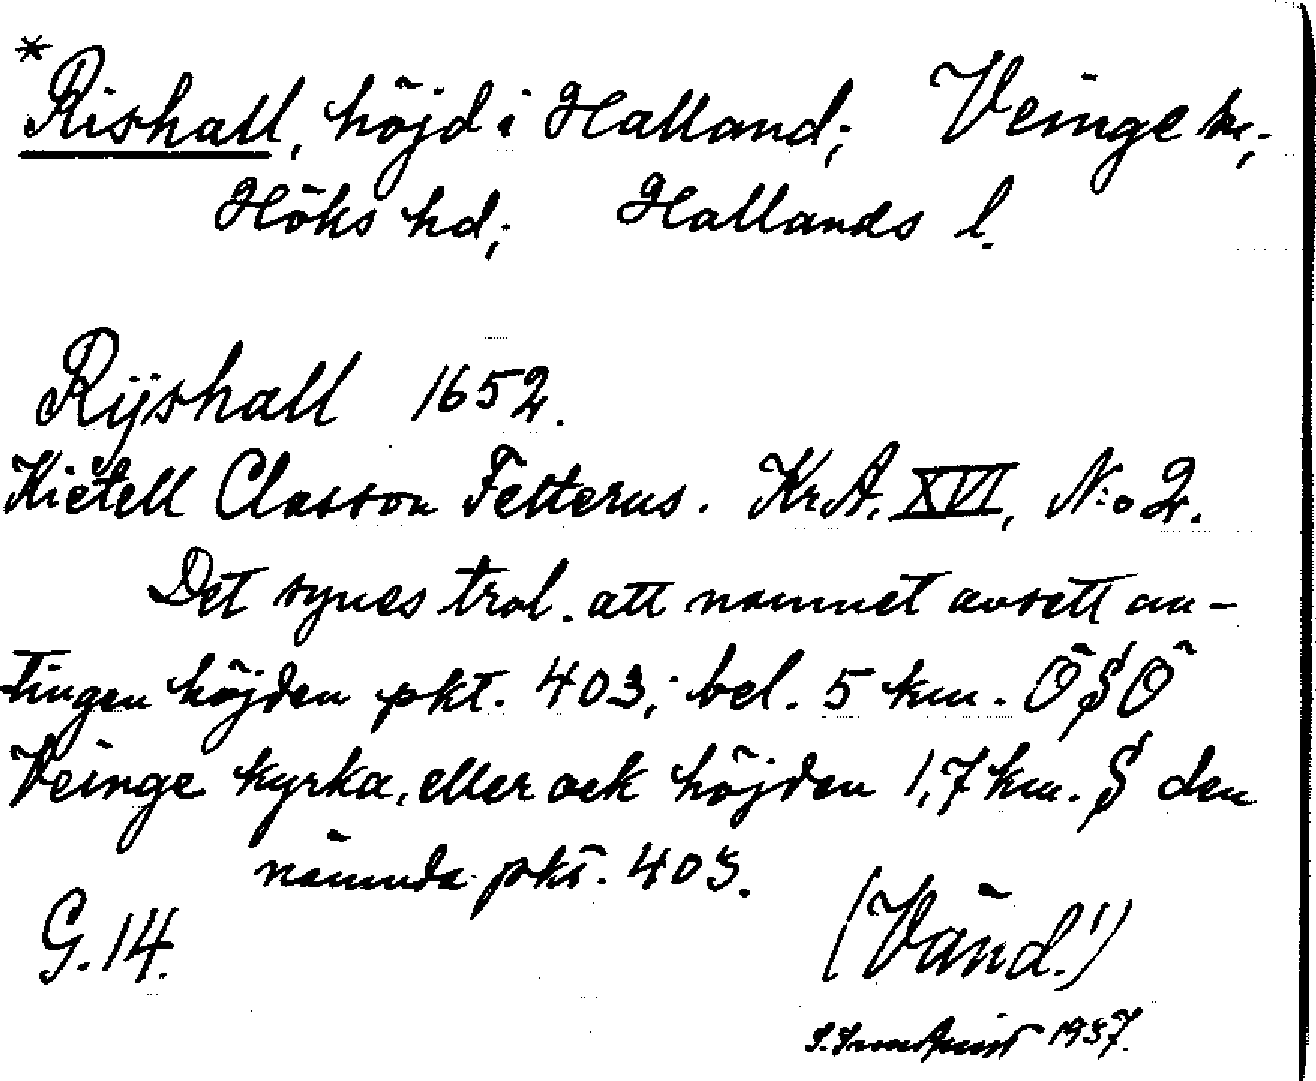 * Rishall, höjd i Halland; Veinge sn;
Höks hd; Hallands l.
Rijshall 1652.
Kietell Classon Felterus. KrA. XVI, N:o 2.
Det synes trol. att namnet avsett an-
tingen höjden pkt. 403; bel. 5 km. Ö§Ö
Veinge kyrka, eller ock höjden 1,7 km. § den
nämnda pkt. 403.
G. 14. (Vänd!)
1937.